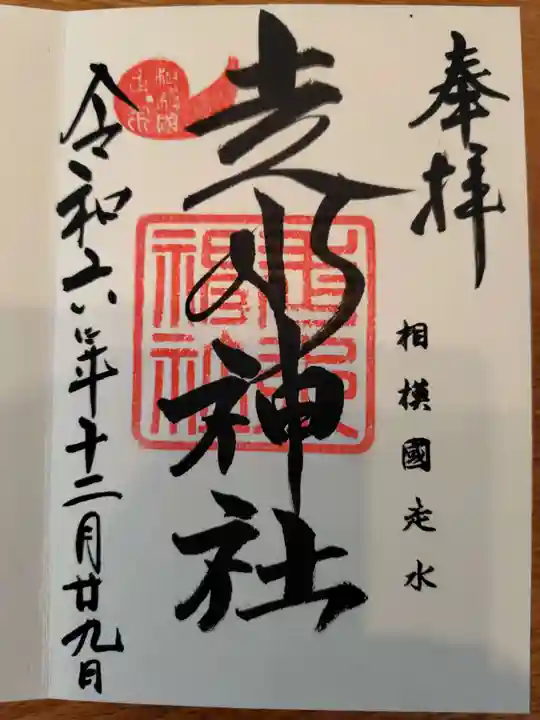 奉拝
相模國走水
走水神社
令和六年十二月廿九日